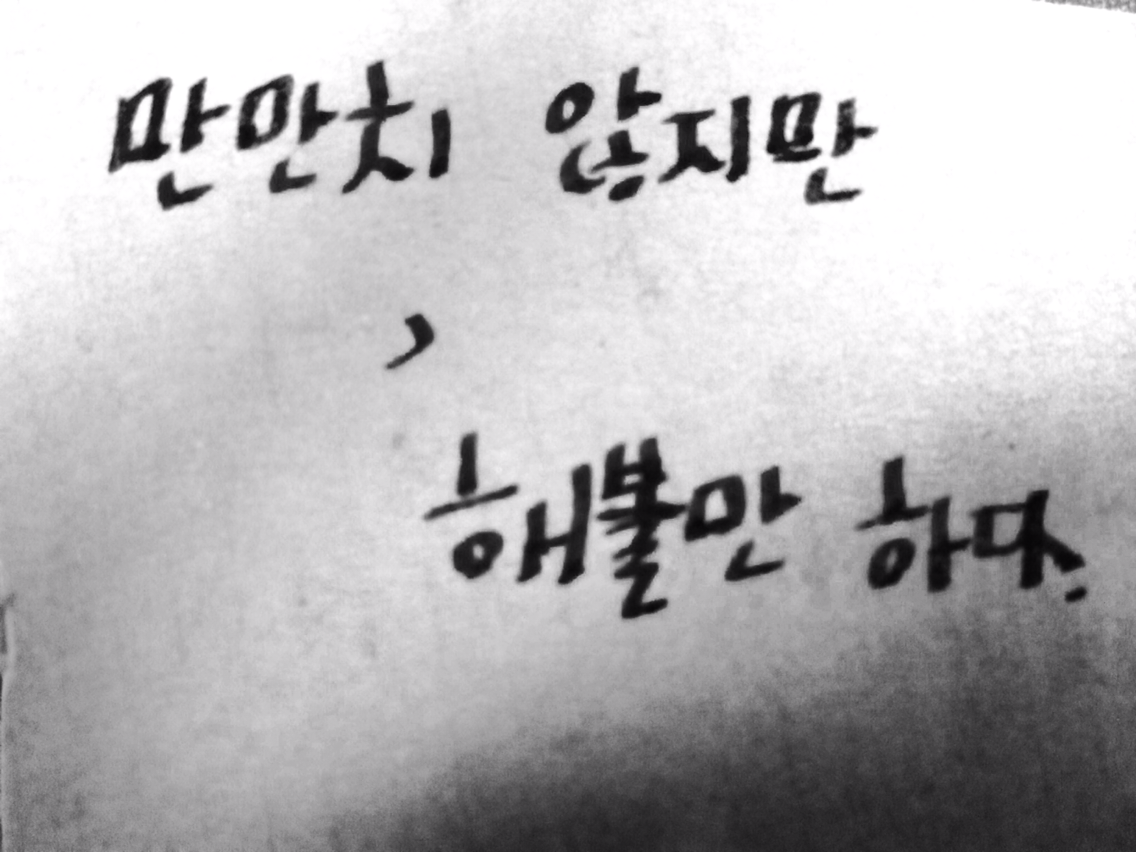 만만치 않지만
,
해볼만 하다.